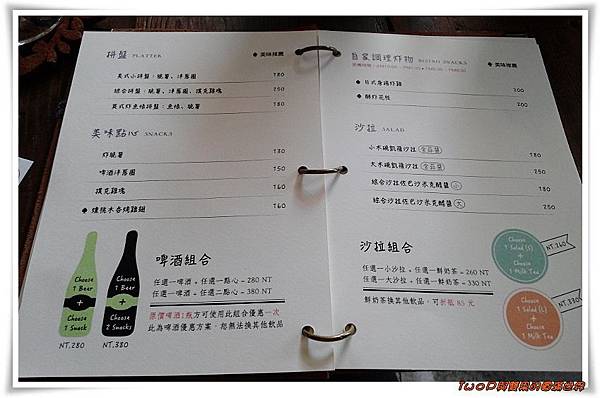 拼盤 PLATTER
◆ 美味推薦
美式小拼盤：脆薯、洋蔥圈 180
綜合拼盤：脆薯、洋蔥圈、撲克雞塊 250
英式炸魚條拼盤：魚條、脆薯 180
美味點心 SNACKS
炸脆薯 130
啤酒洋蔥圈 150
撲克雞塊 160
◆ 煙燻木香烤雞翅 160
啤酒組合
任選一啤酒 + 任選一點心 = 280 NT
任選一啤酒 + 任選二點心 = 380 NT
原價啤酒1瓶方可使用此組合優惠一次
此為啤酒優惠方案，恕無法換其他飲品
Choose
1 Beer
+
Choose
1 Snack
NT.280
Choose
1 Beer
+
Choose
2 Snacks
NT.380
自家調理炸物 BISTRO SNACKS
◆ 美味推薦
◆ 日式唐揚炸雞 200
◆ 酥炸花枝 200
沙拉 SALAD
小木碗凱薩沙拉 180
大木碗凱薩沙拉 250
綜合沙拉佐巴沙米克醋醬 小 180
綜合沙拉佐巴沙米克醋醬 大 250
沙拉組合
任選一小沙拉 + 任選一鮮奶茶 = 260 NT
任選一大沙拉 + 任選一鮮奶茶 = 330 NT
鮮奶茶換其他飲品，可折抵 85 元
Choose
1 Salad (S)
+
Choose
1 Milk Tea
NT.260
Choose
1 Salad (L)
+
Choose
1 Milk Tea
NT.330